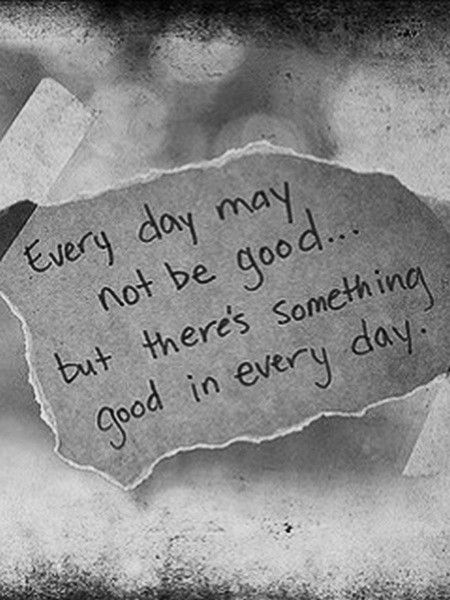 Every day may
not be good...
but there's something
good in every day.